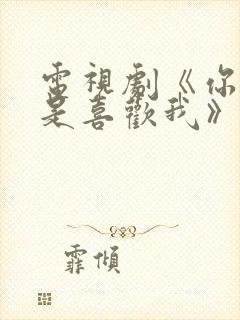 電視劇《你
是喜歡我》
霏傾